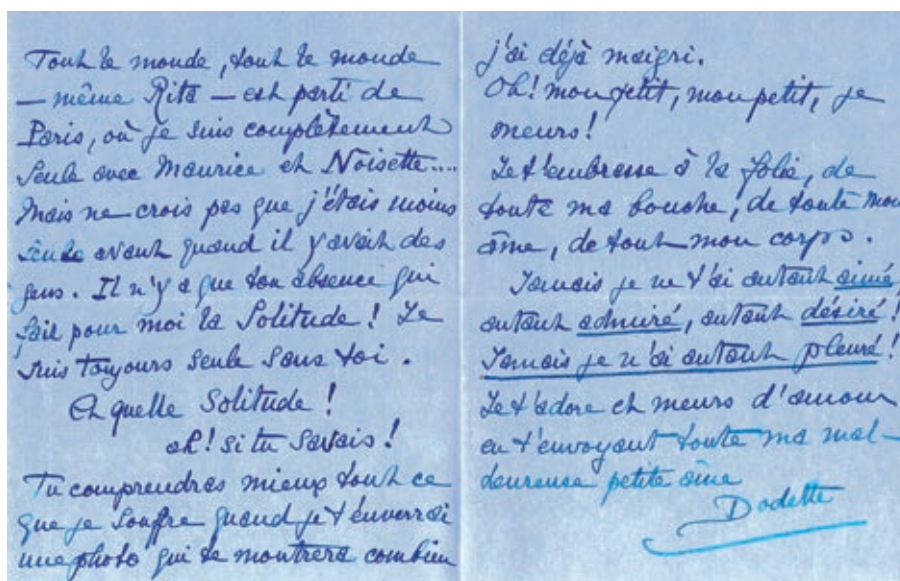 Tout le monde, tout le monde
— même Rita — est parti de
Paris, où je suis complètement
seule avec Maurice et Noisette....
Mais ne crois pas que j'étais moins
seule avant quand il y avait des
gens. Il n'y a que ton absence qui
fait pour moi la Solitude ! Je
suis toujours seule sans toi.
Et quelle Solitude !
ah ! si tu savais !
Tu comprendras mieux tout ce
que je souffre quand je t'enverrai
une photo qui te montrera combien
j'ai déjà maigri.
Oh ! mon petit, mon petit, je
meurs !
Je t'embrasse à la folie, de
toute ma bouche, de toute mon
âme, de tout mon corps.
Jamais je ne t'ai autant aimé,
autant admiré, autant désiré !
Jamais je n'ai autant pleuré !
Je t'adore et meurs d'amour
en t'envoyant toute ma mal-
heureuse petite âme
Dodette